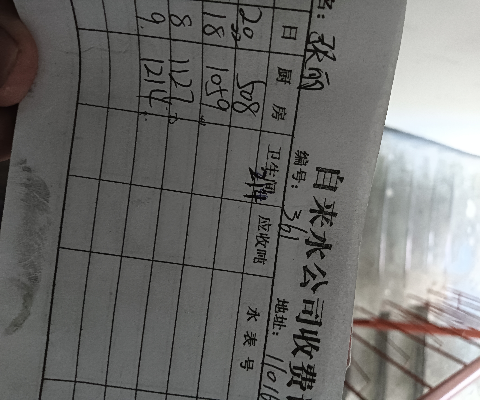 自来水公司收费
名: 张丽 编号: 361 地址: 11016
日 厨房 卫生间 应收吨 水表号
20 508
18 1059
8 1127
9 1214